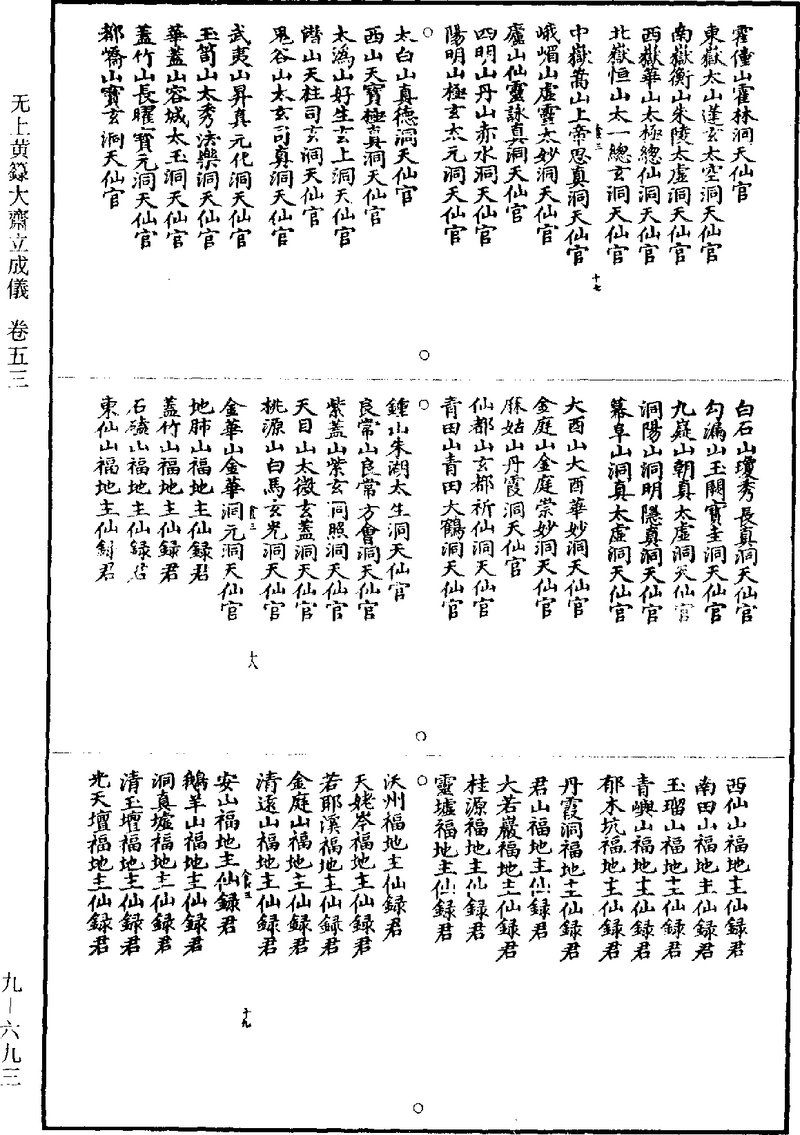 霍僮山霍林洞天仙官
東嶽太山蓬玄太空洞天仙官
南嶽衡山朱陵太虛洞天仙官
西嶽華山太極總仙洞天仙官
北嶽恒山太一總玄洞天仙官
中嶽嵩山上帝思真洞天仙官
十七
峨嵋山虛靈太妙洞天仙官
廬山仙靈詠真洞天仙官
四明山丹山赤水洞天仙官
陽明山極玄太元洞天仙官
太白山真德洞天仙官
西山天寶極真洞天仙官
太溈山好生玄上洞天仙官
潛山天柱司玄洞天仙官
鬼谷山太玄司真洞天仙官
武夷山昇真元化洞天仙官
玉笥山太秀法樂洞天仙官
華蓋山容城太玉洞天仙官
蓋竹山長曜寶元洞天仙官
都嶠山寶玄洞天仙官
白石山瓊秀長真洞天仙官
勾漏山玉闕寶圭洞天仙官
九嶷山朝真太虛洞天仙官
洞陽山洞明隱真洞天仙官
幕阜山洞真太虛洞天仙官
大酉山大酉華妙洞天仙官
金庭山金庭崇妙洞天仙官
麻姑山丹霞洞天仙官
仙都山玄都祈仙洞天仙官
青田山青田大鶴洞天仙官
鍾山朱湖太生洞天仙官
良常山良常方會洞天仙官
紫蓋山紫玄洞照洞天仙官
天目山太微玄蓋洞天仙官
桃源山白馬玄光洞天仙官
十八
金華山金華洞元洞天仙官
地肺山福地主仙録君
蓋竹山福地主仙録君
石磕山福地主仙録君
東仙山福地主仙録君
西仙山福地主仙録君
南田山福地主仙録君
玉瑠山福地主仙録君
青嶼山福地主仙録君
郁木坑福地主仙録君
丹霞洞福地主仙録君
君山福地主仙録君
大若巖福地主仙録君
桂源福地主仙録君
靈墟福地主仙録君
沃州福地主仙録君
天姥岑福地主仙録君
若耶溪福地主仙録君
金庭山福地主仙録君
清遠山福地主仙録君
十九
安山福地主仙録君
鵝羊山福地主仙録君
洞真墟福地主仙録君
清玉壇福地主仙録君
光天壇福地主仙録君
无上黄籙大齋立成儀 卷五三
九—六九三